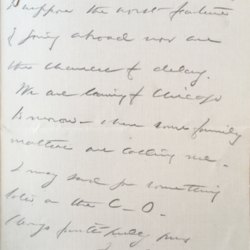 I suppose the worst features
of going abroad now are
the chances of delay.
We are leaving Chicago
tomorrow - where some family
matters are calling me.
I may send for something
later on the C - O.
Always faithfully yours